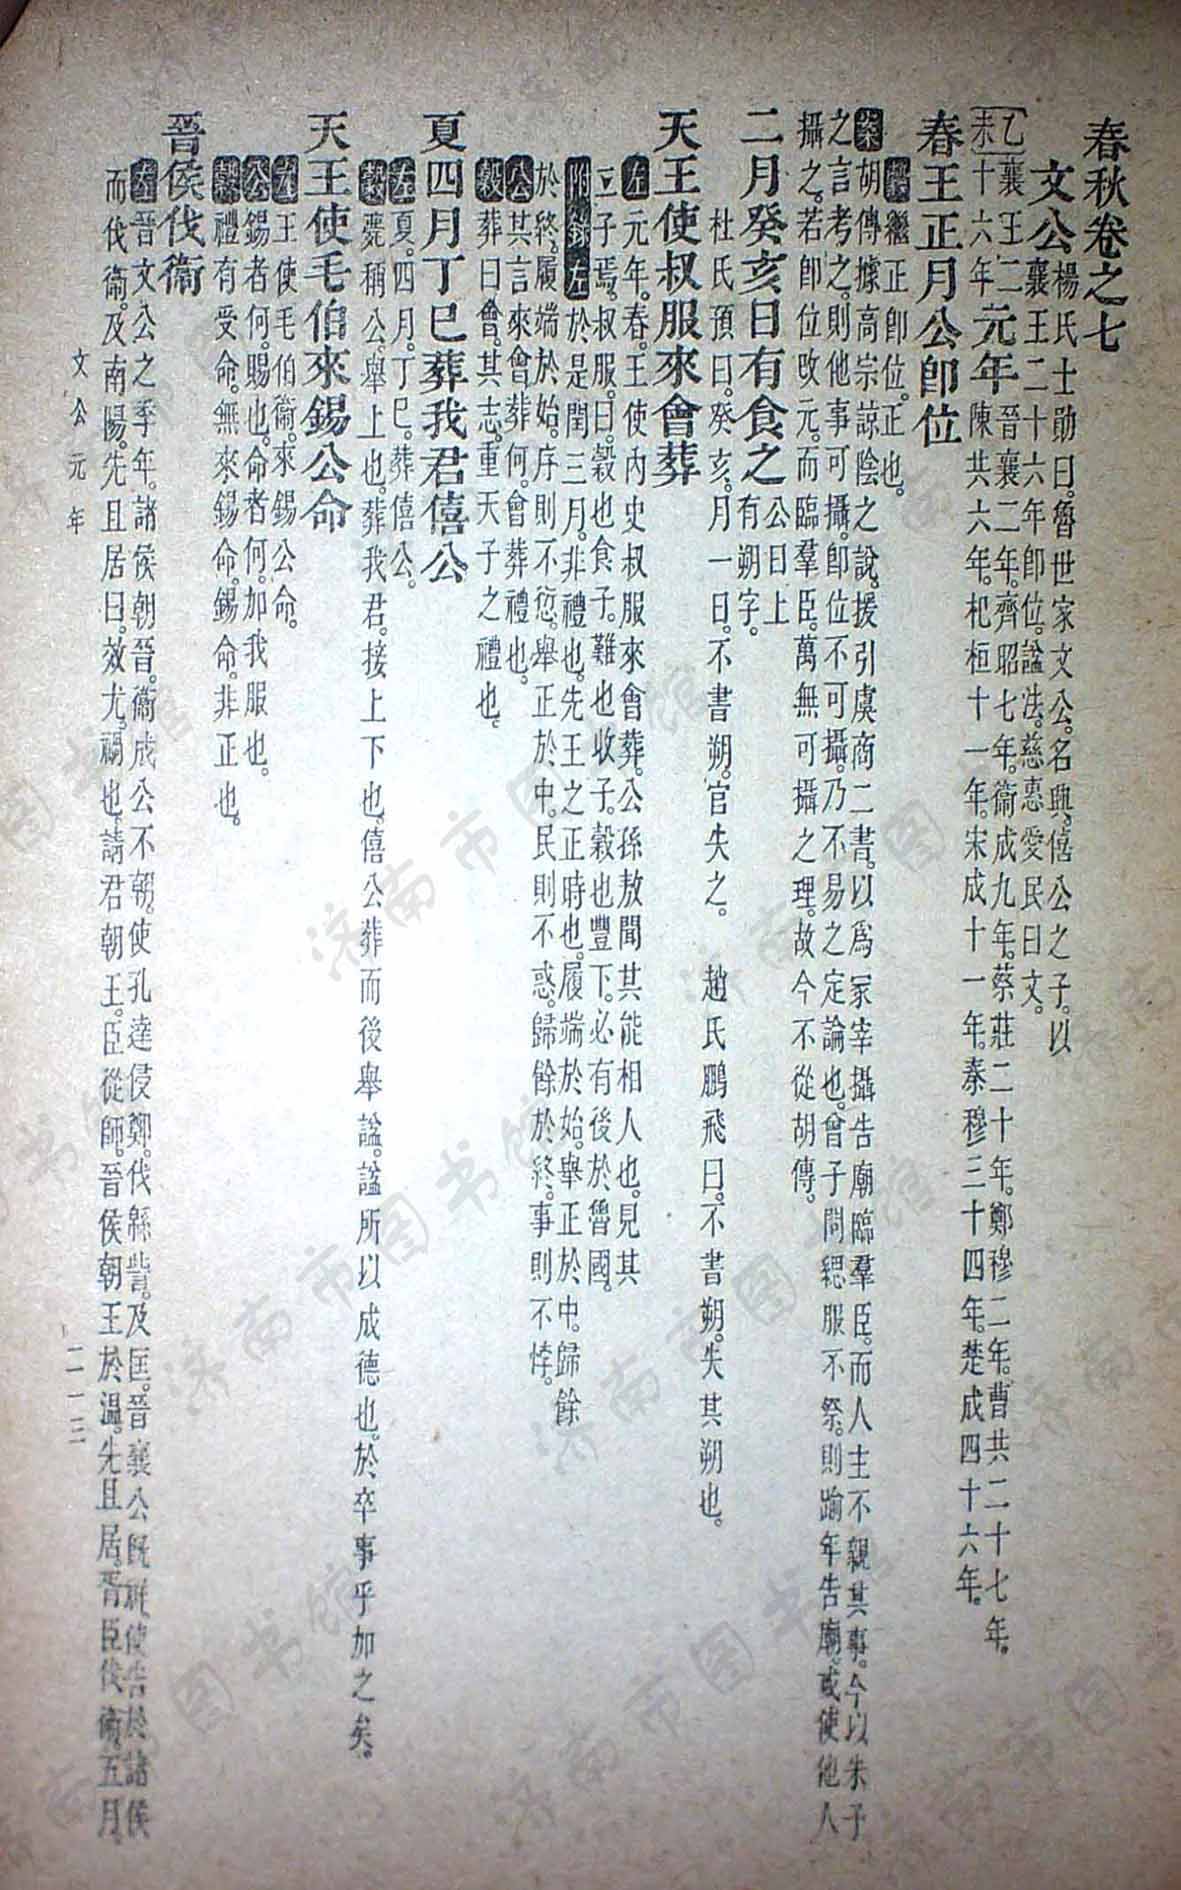 春秋卷之七
文公楊氏士勛曰。魯世家文公。名興。僖公之子。以
襄王二十六年卽位。諡法。慈惠愛民曰文。
乙未襄王二十六年元年
晉襄二年。齊昭七年。衞成九年。蔡莊二十年。鄭穆二年。曹共二十七年。
陳共六年。杞桓十一年。宋成十一年。秦穆三十四年。楚成四十六年。
春王正月公卽位
穀繼正卽位。正也。
案胡傳據高宗諒陰之說。援引虞商二書。以爲冢宰攝告廟臨羣臣。而人主不親其事。今以朱子
之言考之。則他事可攝。卽位不可攝。乃不易之定論也。曾子問緦服不祭。則踰年告廟。或使他人
攝之。若卽位改元。而臨羣臣。萬無可攝之理。故今不從胡傳。
二月癸亥日有食之公曰上有朔字。
杜氏預曰。癸亥。月一日。不書朔。官失之。 趙氏鵬飛曰。不書朔。失其朔也。
天王使叔服來會葬
左元年。春。王使內史叔服來會葬。公孫敖聞其能相人也。見其
二子焉。叔服曰。穀也食子。難也收子。穀也豐下。必有後於魯國。
附錄左於是閏三月。非禮也。先王之正時也。履端於始。舉正於中。歸餘
於終。履端於始。序則不愆。舉正於中。民則不惑。歸餘於終。事則不悖。
公其言來會葬何。會葬禮也。
穀葬曰會。其志。重天子之禮也。
夏四月丁巳葬我君僖公
左夏。四月。丁巳。葬僖公。
穀薨稱公。舉上也。葬我君。接上下也。僖公葬而後舉諡。諡所以成德也。於卒事乎加之矣。
天王使毛伯來錫公命
左王使毛伯衞。來錫公命。
公錫者何。賜也。命者何。加我服也。
穀禮有受命。無來錫命。錫命。非正也。
晉侯伐衞
左晉文公之季年。諸侯朝晉。衞成公不朝。使孔達侵鄭。伐緜訾。及匡。晉襄公旣祥。使告於諸侯
而伐衞。及南陽。先且居曰。效尤。禍也。請君朝王。臣從師。晉侯朝王於溫。先且居。胥臣伐衞。五月。
文公元年
二一三